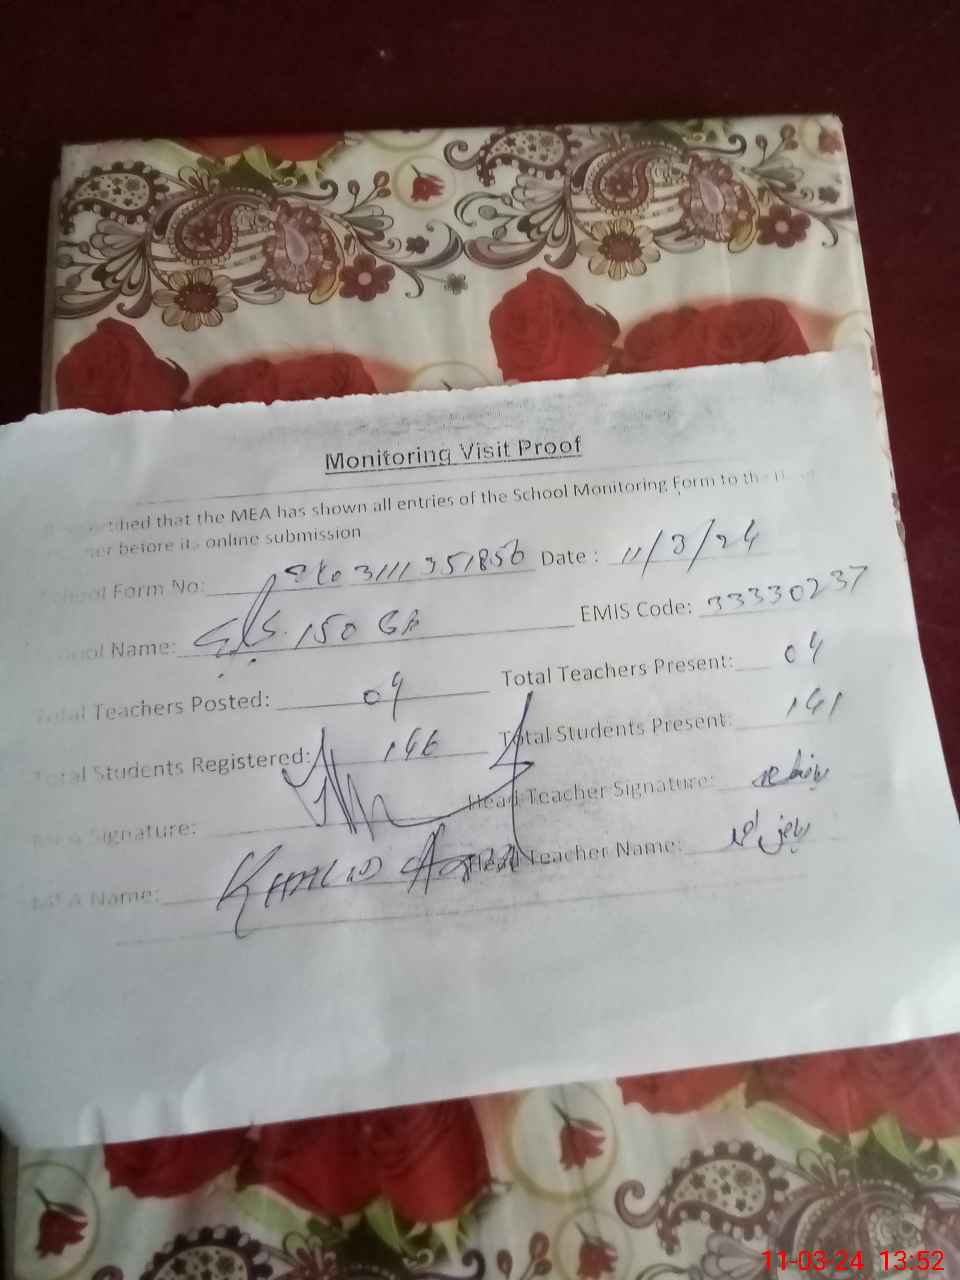 Monitoring Visit Proof
that the MEA has shown all entries of the School Monitoring Form to the
before its online submission
School Form No: 3111351856 Date : 11/3/24
School Name: 150 GB EMIS Code: 33330237
Total Teachers Posted: 04 Total Teachers Present: 04
Total Students Registered: 146 Total Students Present: 141
Signature: Head Teacher Signature:
MEA Name: KHALID Head Teacher Name:
11-03-24 13:52